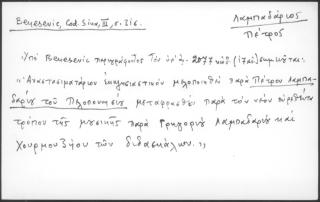 Benesenic, Cod. Sinai, III, σ. 316.
Λαμπαδάριος
Πέτρος
Ὑπὸ Benesenic περιγράφεται τὸν ὑπ' ἀ. 2077 κώδ. (17 αἰ.) σημειοῦται:
"Ἀναστασιματάριον ἐκκλησιαστικὸν μελοποιηθὲν παρὰ Πέτρου Λαμπα-
δαρίου τοῦ Πελοποννησίου μεταφρασθὲν παρὰ τὸν νέον εὑρεθέντα
τρόπον τῆς μουσικῆς παρὰ Γρηγορίου Λαμπαδαρίου καὶ
Χουρμουζίου τῶν διδασκάλων."